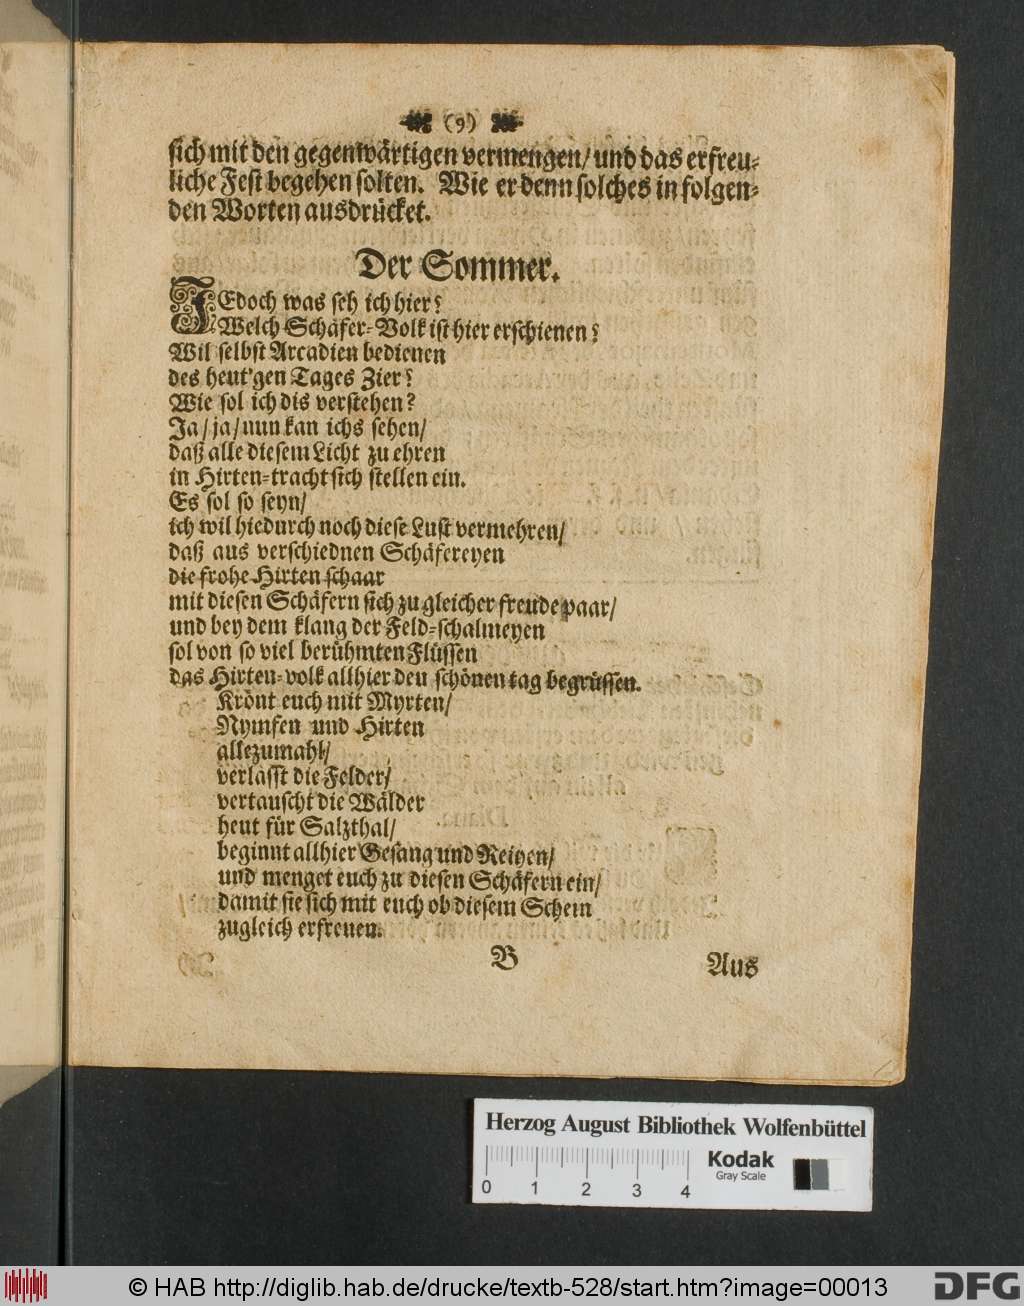 (9)
sich mit den gegenwärtigen vermengen/ und das erfreu-
liche Fest begehen solten. Wie er denn solches in folgen-
den Worten ausdrücket.
Der Sommer.
JEdoch was seh ich hier?
Welch Schäfer-Volk ist hier erschienen?
Wil selbst Arcadien bedienen
des heut'gen Tages Zier?
Wie sol ich dis verstehen?
Ja/ ja/ nun kan ichs sehen/
daß alle diesem Licht zu ehren
in Hirten-tracht sich stellen ein.
Es sol so seyn/
ich wil hiedurch noch diese Lust vermehren/
daß aus verschiednen Schäfereyen
die frohe Hirten schaar
mit diesen Schäfern sich zu gleicher freude paar/
und bey dem klang der Feld-schalmeyen
sol von so viel berühmten Flüssen
das Hirten-volk allhier den schönen tag begrüssen.
Krönt euch mit Myrten/
Nymfen und Hirten
allezumahl/
verlasst die Felder/
vertauscht die Wälder
heut für Salzthal/
beginnt allhier Gesang und Reiyen/
und menget euch zu diesen Schäfern ein/
damit sie sich mit euch ob diesem Schein
zugleich erfreuen.
B Aus
Herzog August Bibliothek Wolfenbüttel
0 1 2 3 4
Kodak
Gray Scale
© HAB http://diglib.hab.de/drucke/textb-528/start.htm?image=00013
DFG